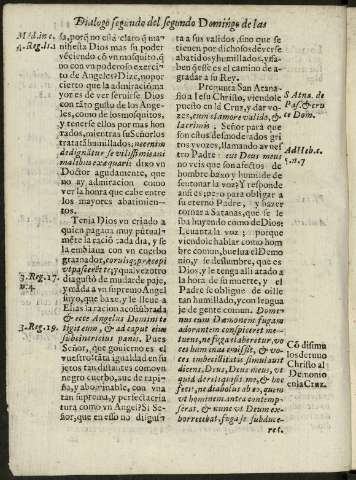 Dialogo segundo del segundo Domingo de las
Mad. in c.
4. Reg. 11.1
sa, porq̃ no está claro q̃ ma-
nifiesta Dios mas su poder
vẽciendo cõ vn mosquito, q̃
no con vn poderoso exerci-
to de Angeles? Dize, no por
cierto que la admiraciõ ma
yor es de ver seruirse Dios
con tãto gusto de los Ange-
les, como de los mosquitos,
y tenerse ellos por mas hon
rados, mientras su Señor los
tratatã humillados; necenim
dedignãtur se vilissimis ani
malibus exæquari dixo vn
Doctor agudamente, que
no ay admiracion como
ver la honra que cabe entre
los mayores abatimien-
tos.
Tenia Dios vn criado a
quien pagaua muy pũtual-
mẽte la raciõ cada dia, y se
la embiaua con vn cuerbo
3. Reg. 17.
n. 4.
graznador, coruisq; præcepi
vt pascerẽt te; y qual vez otro
disgustó de mudar de paje,
y mãda a vn supremo Angel
suyo, que baxe, y le lleue a
Elias la racion acostũbrada
3. Reg. 19.
& ecce Angelus Domini te
tigit eum, & ad caput eius
subcinericius panis. Pues
Señor, que gouierno es el
vuestro? tãta igualdad en su
jetos tan distantes como vn
negro cuerbo, aue de rapi-
ña, y abominable, con vna
tan suprema, y perfecta cria
tura como vn Angel? Si Se-
ñor, que en esso no disgus-
ta a sus validos, sino que se
tienen por dichosos de verse
abatidos y humillados, y sa-
ben q̃ esse es el camino de a-
gradar a su Rey.
Pregunta San Atana-
sio a Iesu Christo, viendole
puesto en la Cruz, y dar vo-
zes, cum clamore valido, &
lacrimis: Señor para que
son essos desmoderados gri
tos y vozes, llamando a vues
tro Padre: eus Deus meus
S Atna. de
Pas. & cru
ce Dom.
Ad Heb. c.
5. n. 7
no veis que son afectos de
hombre baxo y humilde de-
sentonar la voz? Y responde
ansi es; pero para obligar a
su eterno Padre, y hazer
tornar a Satanas, que se le
iba huyendo como de Dios:
Leuanta la voz; porque
viendole hablar como hom
bre comun, buelua el Demo
nio, y se deslumbre, que es
Dios, y le tenga alli atado a
la hora de su muerte, y el
Padre se obligue de oille
tan humillado, y con lengua
je de gente comun. Domi-
nus cum Dæmonem fugam
adorantem conspiceret me-
tuens, ne fuga elaberetur, vo
ces humanas emissit, & vo-
tes imbecillitatis simulauit
dicens, Deus, Deus meus, vt
quid dereliquisti me, & hoc
fecit, ne diabolus obiret, quem
vt hominem antea contemp-
serat, & nunc vt Deum ex-
horrescebat, fuga se subduce-
ret.
Cõ dissimu
los detuuo
Christo al
Demonio
en la Cruz.